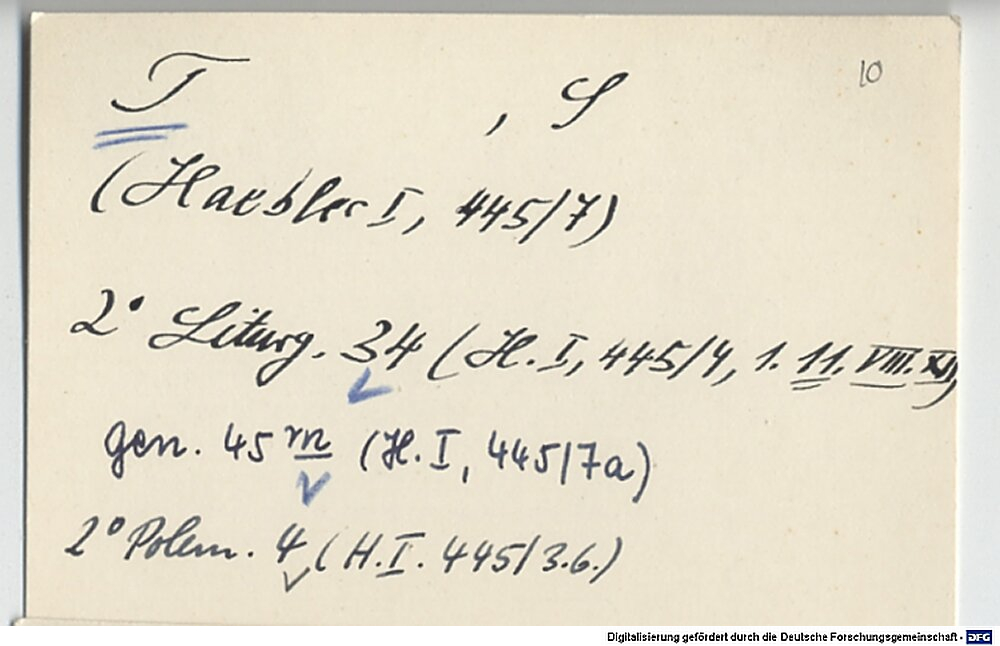 10
T , S
(Haebler I, 445/7)
2° Liturg. 34 (H. I, 445/4, 1. 11. VIII. XI)
gen. 45 m (H. I, 445/7a)
2° Polem. 4 (H. I. 445/3.6.)
Digitalisierung gefördert durch die Deutsche Forschungsgemeinschaft - DFG